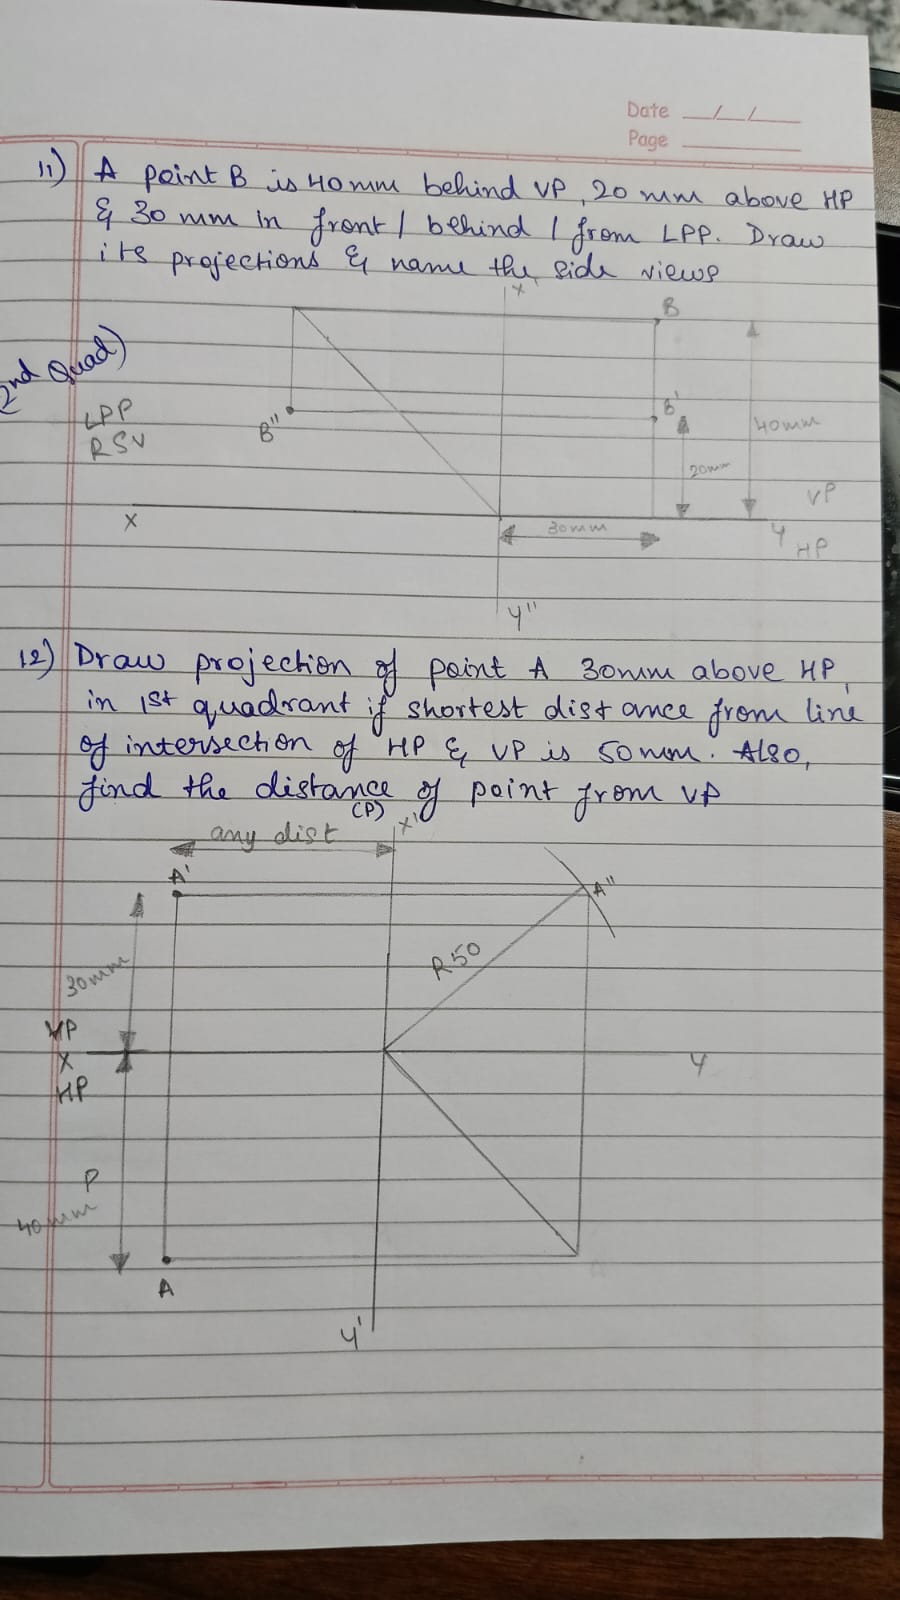 Date __/__/__
Page ______
11) A point B is 40mm behind VP, 20 mm above HP
& 30 mm in front / behind / from LPP. Draw
its projections & name the side views
X'
B
2nd Quad)
LPP
RSV
B''
B'
40mm
20mm
VP
X
30mm
Y
HP
Y''
12) Draw projection of point A 30mm above HP,
in 1st quadrant if shortest distance from line
of intersection of HP & VP is 50mm. Also,
find the distance of point from VP
(P)
any dist
X'
A'
A''
R50
30mm
VP
X
HP
Y
P
40mm
A
Y'